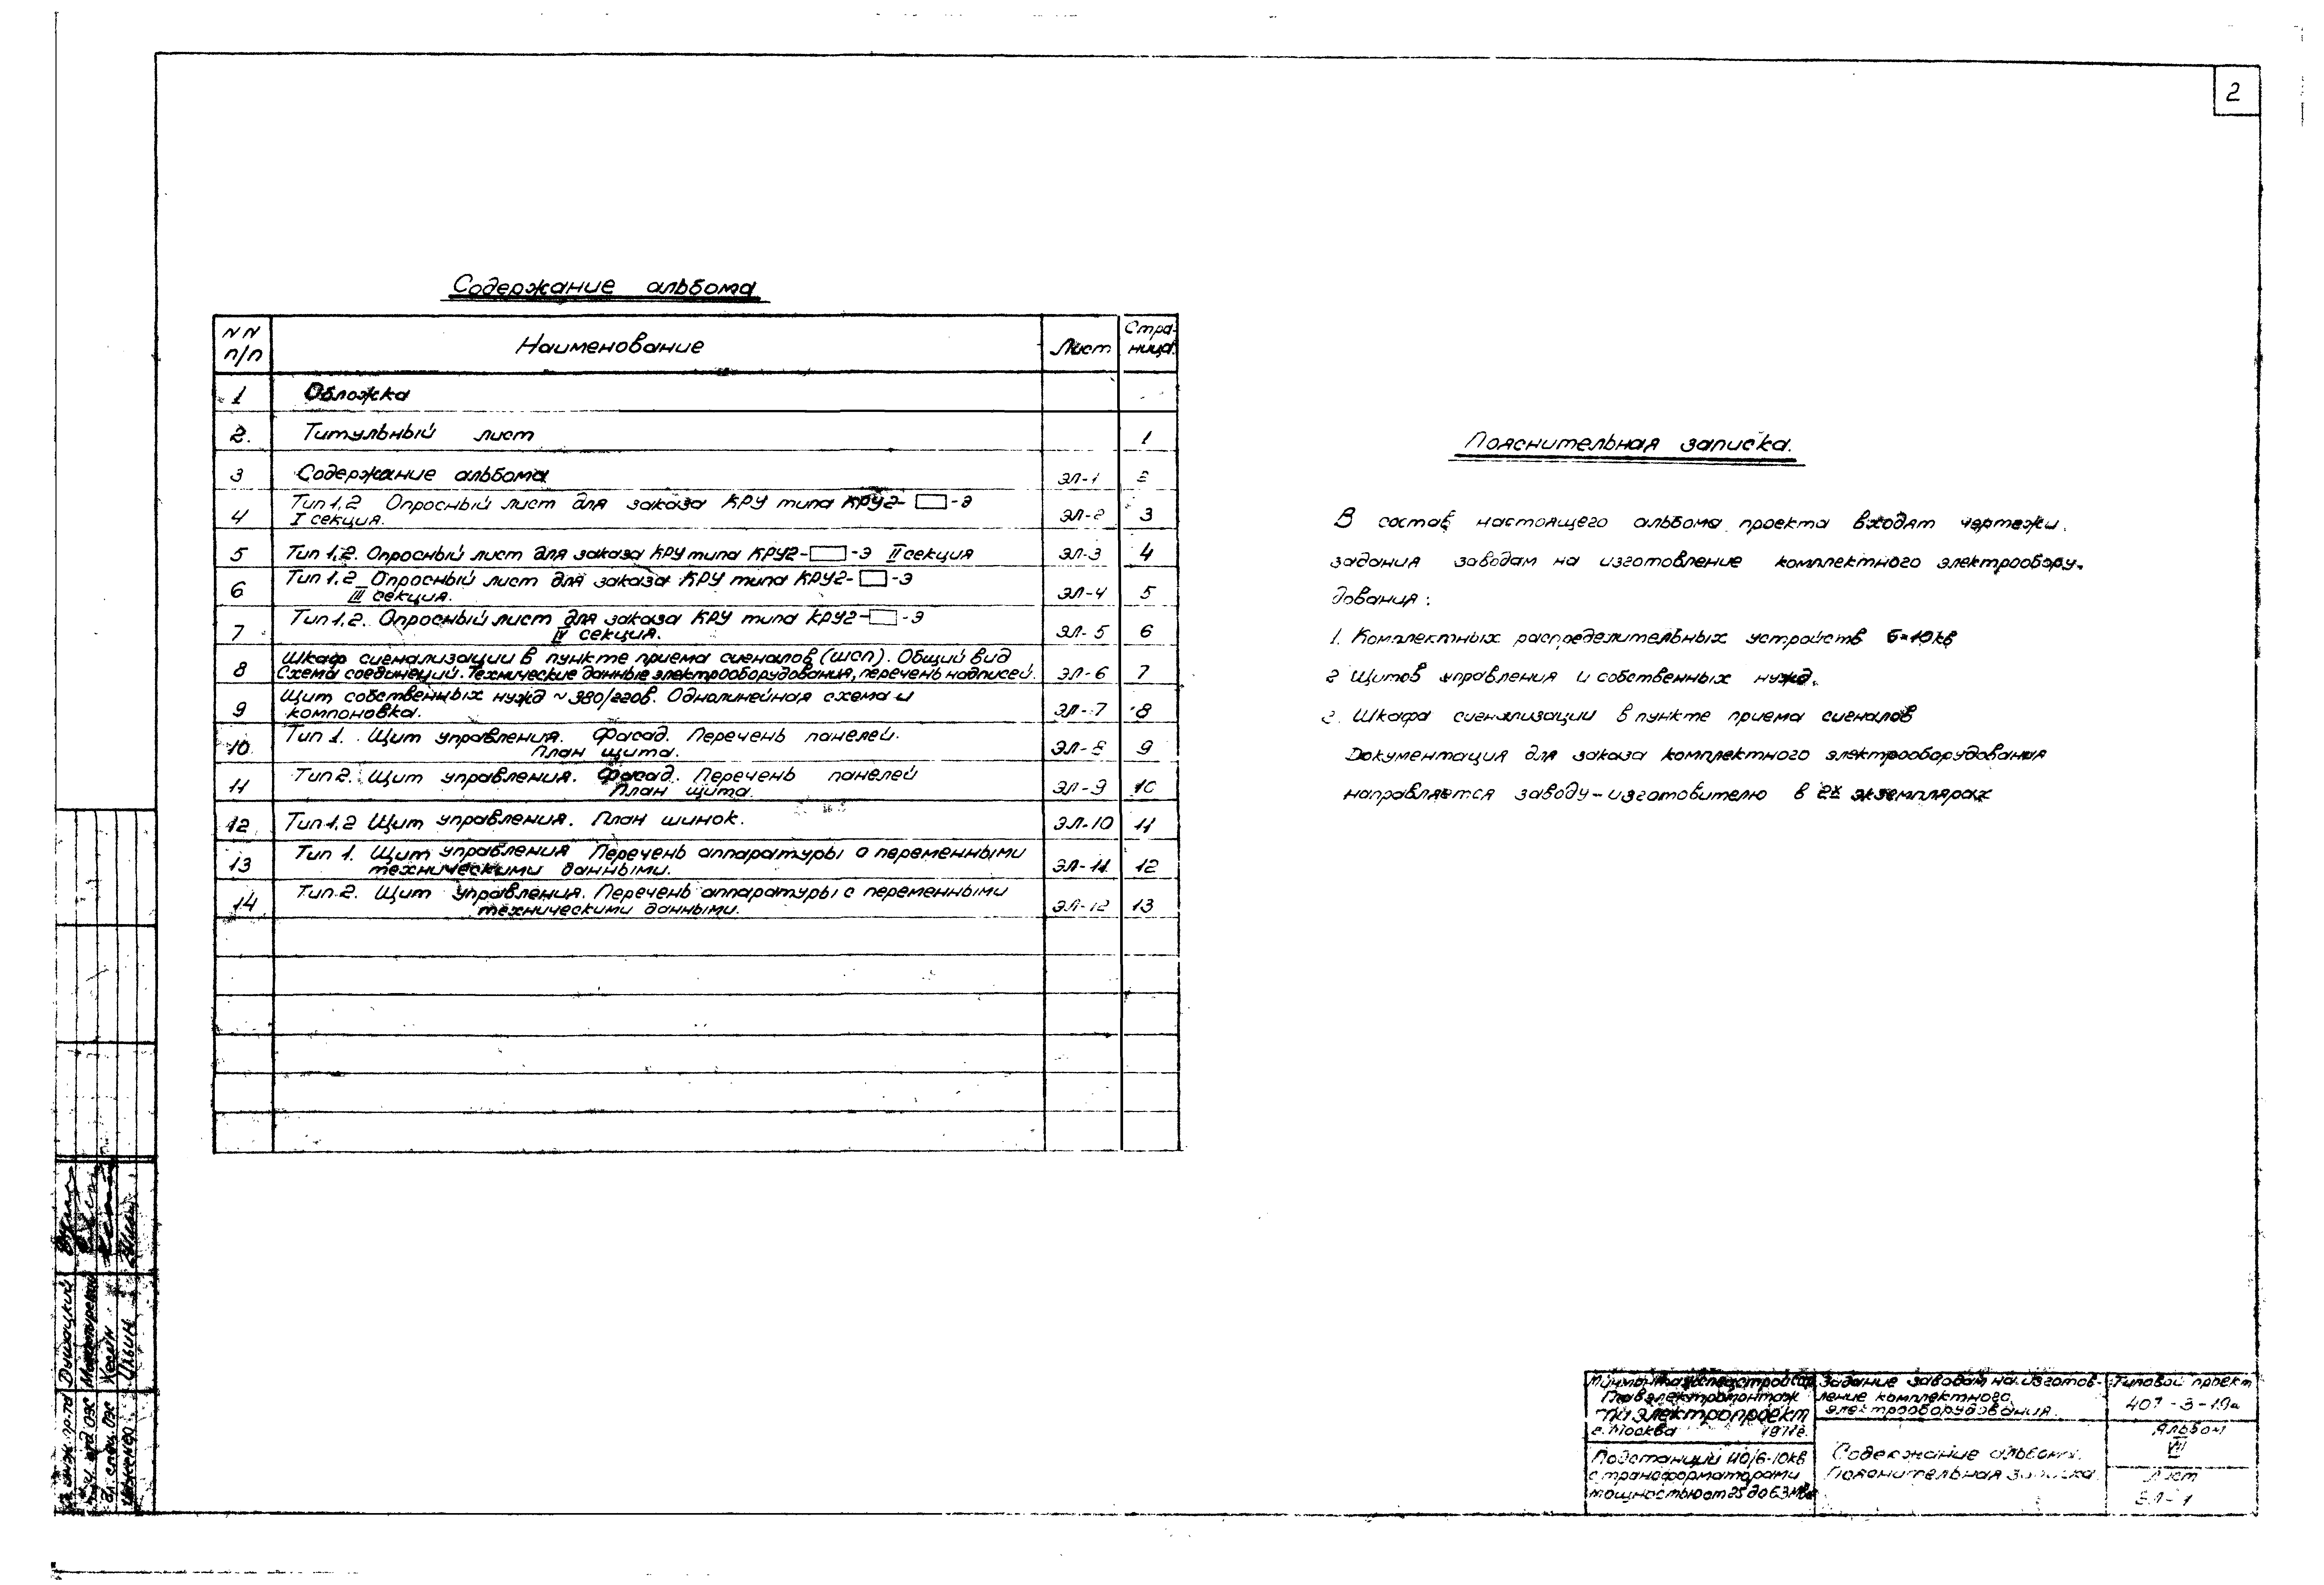 2
Содержание альбома
NN п/п Наименование Лист Стра-ница
1 Обложка
2. Титульный лист 1
3 Содержание альбома ЭЛ-1 2
Тип 1,2 Опросный лист для заказа КРУ типа КРУ2-□-Э
4 I секция. ЭЛ-2 3
5 Тип 1,2. Опросный лист для заказа КРУ типа КРУ2-□-Э II секция ЭЛ-3 4
Тип 1,2 Опросный лист для заказа КРУ типа КРУ2-□-Э
6 III секция. ЭЛ-4 5
Тип 1,2. Опросный лист для заказа КРУ типа КРУ2-□-Э
7 IV секция. ЭЛ-5 6
Шкаф сигнализации в пункте приема сигналов (ШСП). Общий вид
8 Схема соединений. Технические данные электрооборудования, перечень надписей. ЭЛ-6 7
Щит собственных нужд ~380/220в. Однолинейная схема и
9 компоновка. ЭЛ-7 8
Тип 1. Щит управления. Фасад. Перечень панелей.
10 План щита. ЭЛ-8 9
Тип 2. Щит управления. Фасад. Перечень панелей
11 План щита. ЭЛ-9 10
12 Тип 1,2 Щит управления. План шинок. ЭЛ-10 11
Тип 1. Щит управления Перечень аппаратуры с переменными
13 техническими данными. ЭЛ-11 12
Тип 2. Щит управления. Перечень аппаратуры с переменными
14 техническими данными. ЭЛ-12 13
Пояснительная записка.
В состав настоящего альбома проекта входят чертежи
задания заводам на изготовление комплектного электрообору-
дования:
1. Комплектных распределительных устройств 6-10кв
2 Щитов управления и собственных нужд.
3. Шкафа сигнализации в пункте приема сигналов
Документация для заказа комплектного электрооборудования
направляется заводу-изготовителю в 2х экземплярах
Минмонтажспецстрой СССР
Главэлектромонтаж
ГПИ Электропроект
г. Москва 1971г.
Подстанции 110/6-10кв
с трансформаторами
мощностью от 25 до 63 Мва
Задание заводам на изготов-
ление комплектного
электрооборудования.
Содержание альбома.
Пояснительная записка.
Типовой проект
407-3-19а
Альбом
VII
Лист
ЭЛ-1
Душацкий
Хейн
Гл. спец. ОЭС
Инженер Ильин